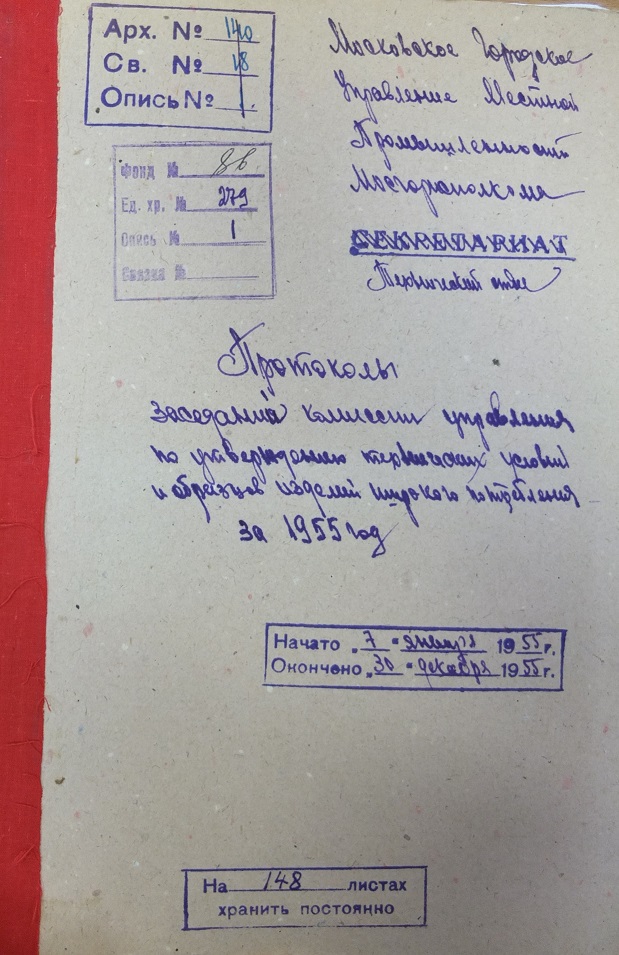 Арх. № 140
Св. № 18
Опись № 1.
Фонд № 86
Ед. хр. № 279
Опись № 1
Связка №
Московское Городское
Управление Местной
Промышленности
Мосгорисполкома
СЕКРЕТАРИАТ
Технический отдел
Протоколы
заседаний комиссии управления
по утверждению технических условий
и образцов изделий широкого потребления
за 1955 год
Начато „7" января 1955 г.
Окончено „30" декабря 1955 г.
На 148 листах
хранить постоянно